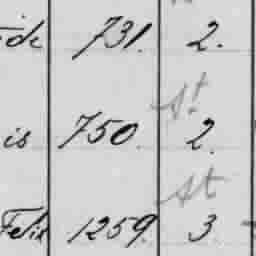 ide 731. 2.
St
is 750. 2.
St
Felix 1259. 3.